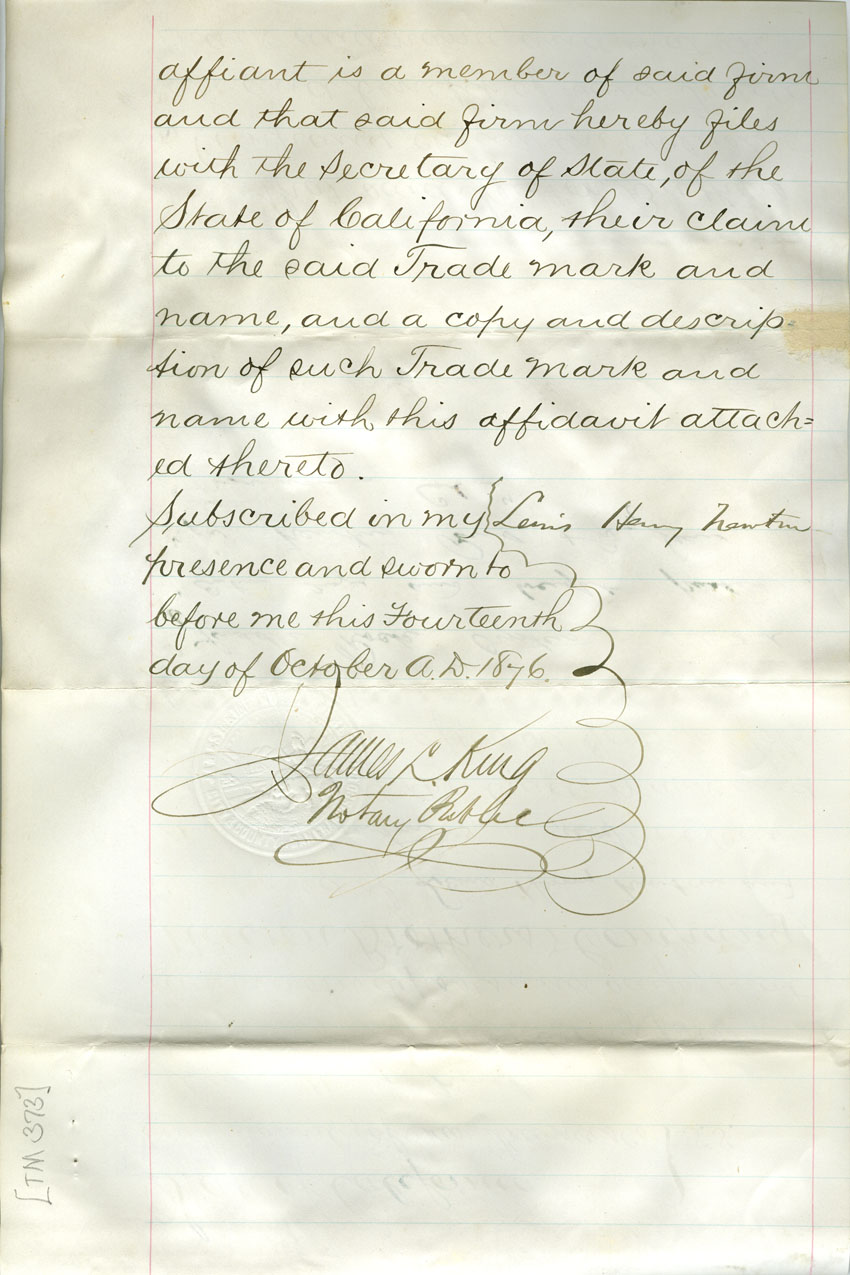 affiant is a member of said firm
and that said firm hereby files
with the Secretary of State, of the
State of California, their claim
to the said Trade mark and
name, and a copy and descrip-
tion of such Trade mark and
name with this affidavit attach=
ed thereto.
Subscribed in my Lewis Henry Newton
presence and sworn to
before me this Fourteenth
day of October A.D. 1876.
James L. King
Notary Public
[TM 373]